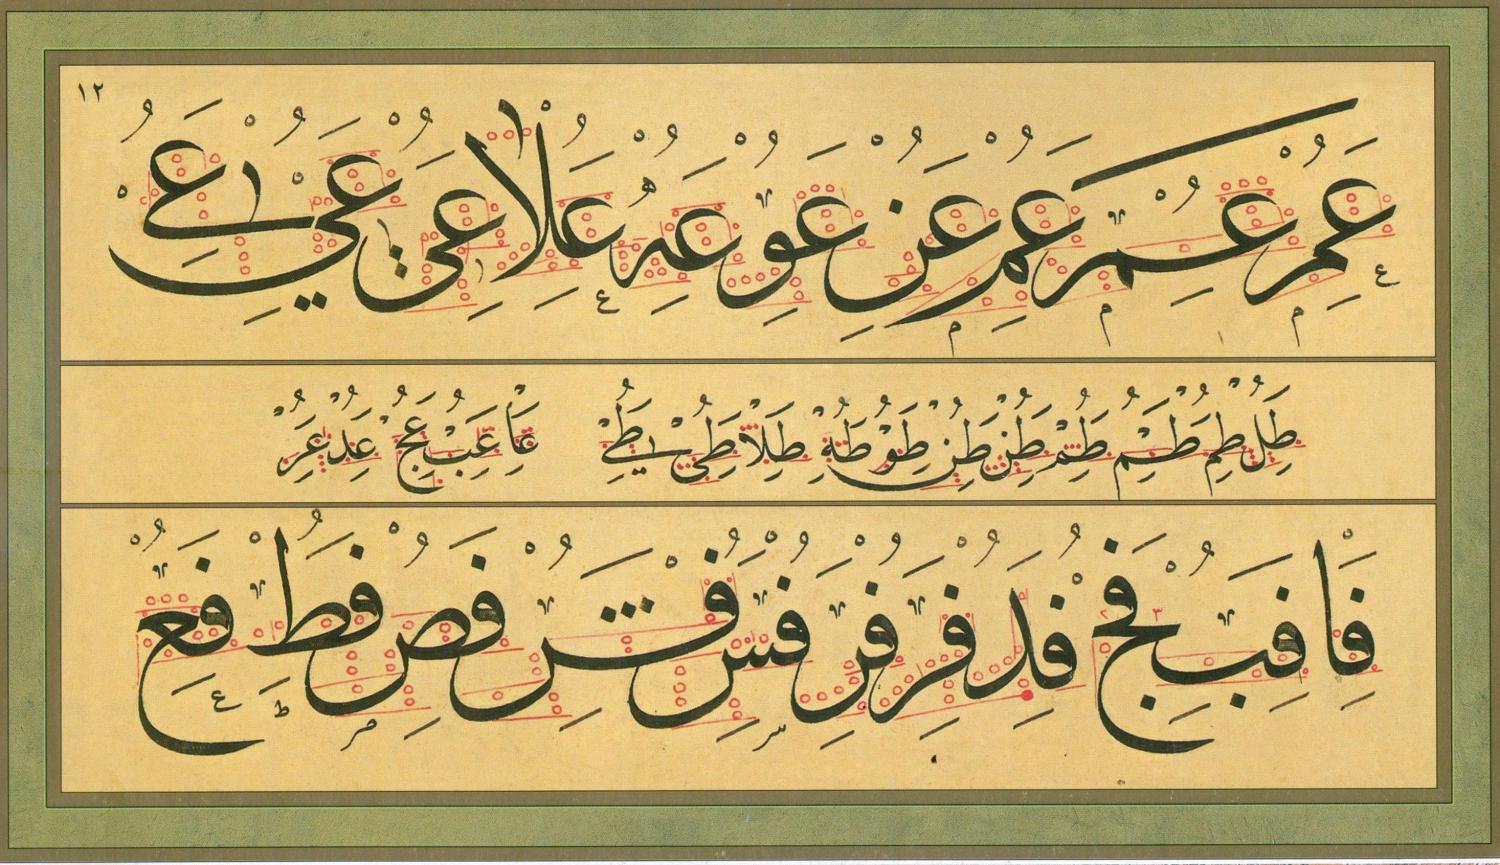 ١٢
عم عم عم عن عو عه علا عي عي عي
طل طم طم طم طن طن طو طه طلا طي طي عا عب عج عد عر
فا فب فج فد فر فر فس فش فص فط فع